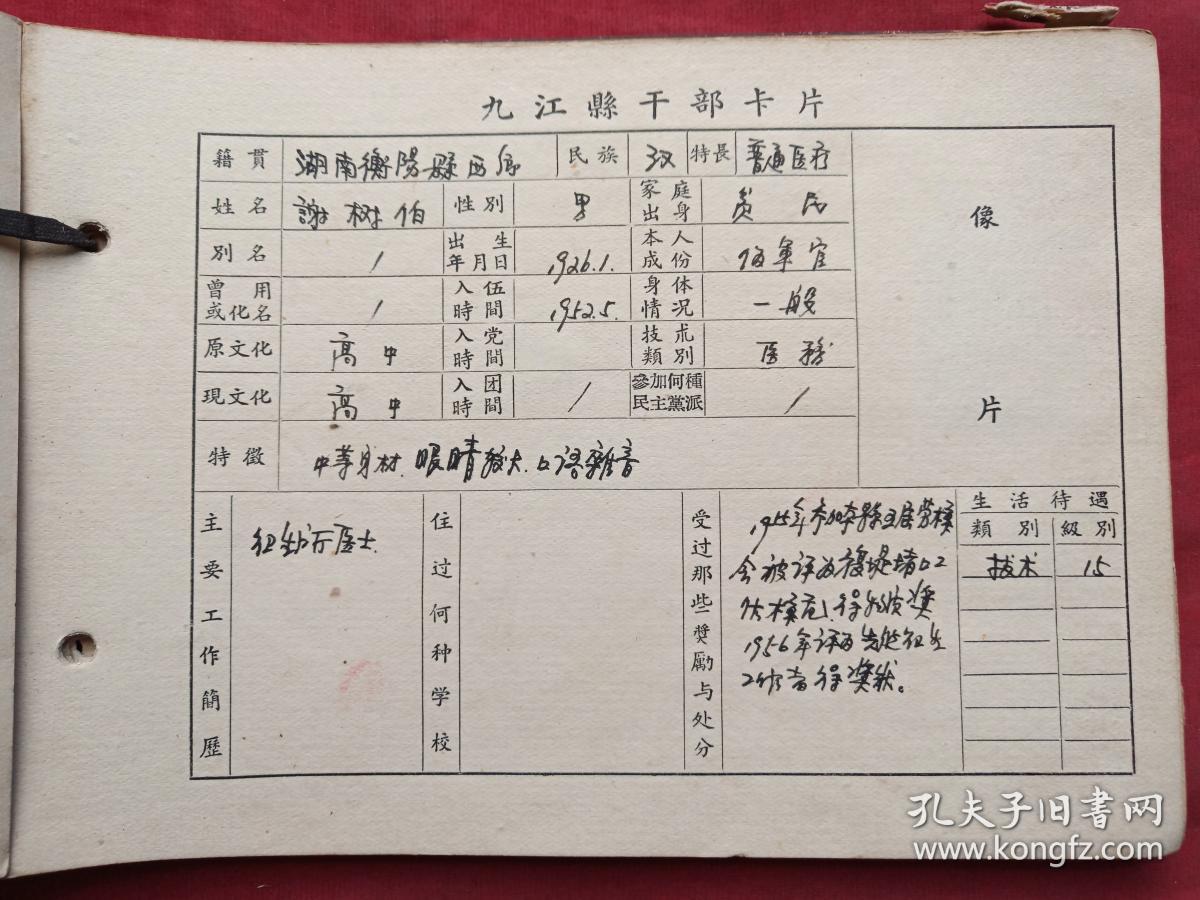 九江縣干部卡片
籍貫 湖南衡陽縣西鄉 民族 汉 特長 普通医疗
姓名 謝树伯 性別 男 家庭出身 貧民
別名 / 出生年月日 1926.1. 本人成份 伪軍官
曾用或化名 / 入伍時間 1952.5. 身体情况 一般
原文化 高中 入党時間 技朮類別 医務
現文化 高中 入团時間 / 參加何種民主黨派 /
特徵 中等身材.眼睛較大.口语雜音
像
片
主要工作簡歷
医士
住过何种学校
受过那些獎勵与处分
1955年参加本縣
会被评为復堤堵口工
作模范,得 奖
1956年评为先进卫生
工作者得奖状。
生活待遇
類別 級別
技术 15
孔夫子旧书网
www.kongfz.com